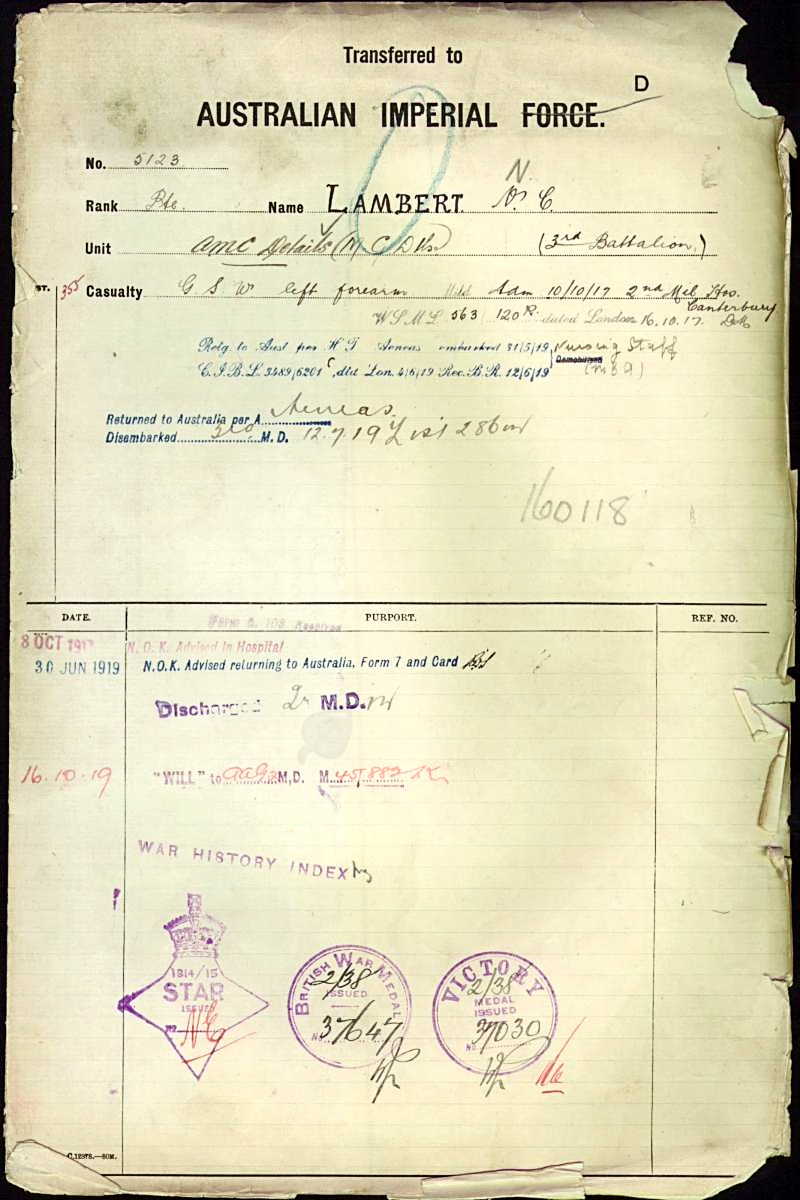 Transferred to
D
AUSTRALIAN IMPERIAL FORCE.
No. 5123
N.
Rank Pte. Name LAMBERT. N. C.
Unit AMC Details (N) C/D (3rd Battalion.)
ST. 355 Casualty G S W left forearm Mild Adm 10/10/17 2nd Mil. Hos.
Canterbury
W.S.M.L. 563 120 R. dated London 16.10.17.
Retg. to Aust per H.T. Aeneas embarked 31/5/19 Nursing Staff
C.I.B.L. 3489/6201, dtd Lon. 4/6/19 Rec. B.R. 12/6/19
Returned to Australia per A Aeneas.
Disembarked M.D. 12.7.19 List 286
160118
DATE. PURPORT. REF. NO.
8 OCT N.O.K. Advised in Hospital
30 JUN 1919 N.O.K. Advised returning to Australia, Form 7 and Card
Discharged 2 M.D.
16.10.19 "WILL" to M.D. M. 45882
WAR HISTORY INDEX
1914/15
STAR
ISSUED
No
BRITISH WAR MEDAL
2/38
ISSUED
No. 37647
VICTORY
2/38
MEDAL
ISSUED
No. 37030
C.12878.—50M.